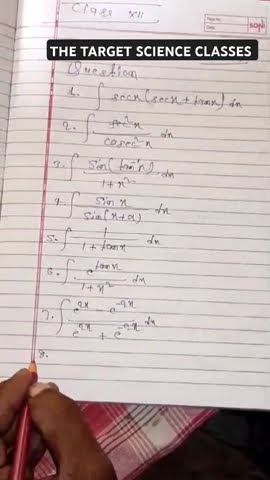 Class XII
Page No.
Date
SONI
THE TARGET SCIENCE CLASSES
Question
1. ∫ secx (secx + tanx) dx
2. ∫ sec²x / cosec²x dx
3. ∫ sin(tan⁻¹x) / 1+x² dx
4. ∫ sin x / sin(x+a) dx
5. ∫ 1 / 1+tanx dx
6. ∫ e^tanx / 1+x² dx
7. ∫ e^2x - e^-2x / e^2x + e^-2x dx
8.